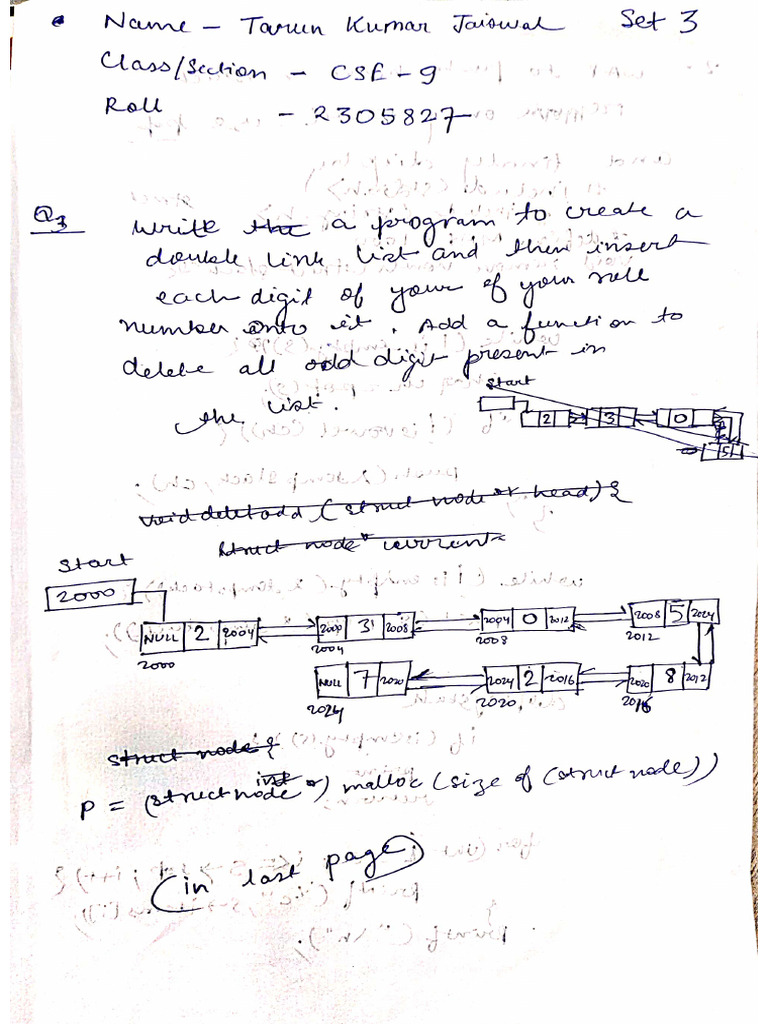 Name - Tarun Kumar Jaiswal Set 3
Class/Section - CSE-9
Roll - 2305827
Q3 Write the a program to create a
double link list and then insert
each digit of your of your roll
number onto it. Add a function to
delete all odd digit present in
the list.
start
2 3 0
5
void deletodd (struct node * head) {
struct node * current
Start
2000
NULL 2 2004 2000 3 2008 2004 0 2012 2008 5 2024
2000 2004 2008 2012
NULL 7 2020 2024 2 2016 2020 8 2012
2024 2020 2016
struct node {
int
P = (struct node *) malloc (size of (struct node))
(in last page)